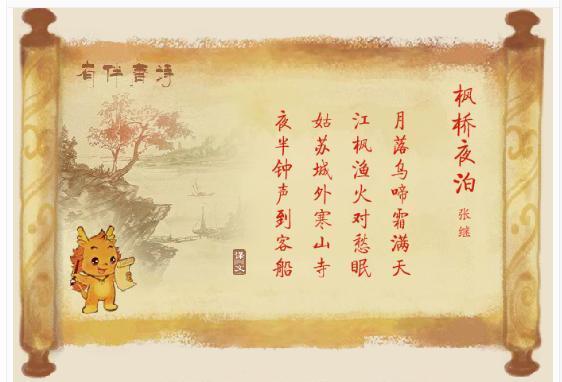 枫桥夜泊
张继
月落乌啼霜满天
江枫渔火对愁眠
姑苏城外寒山寺
夜半钟声到客船
译文